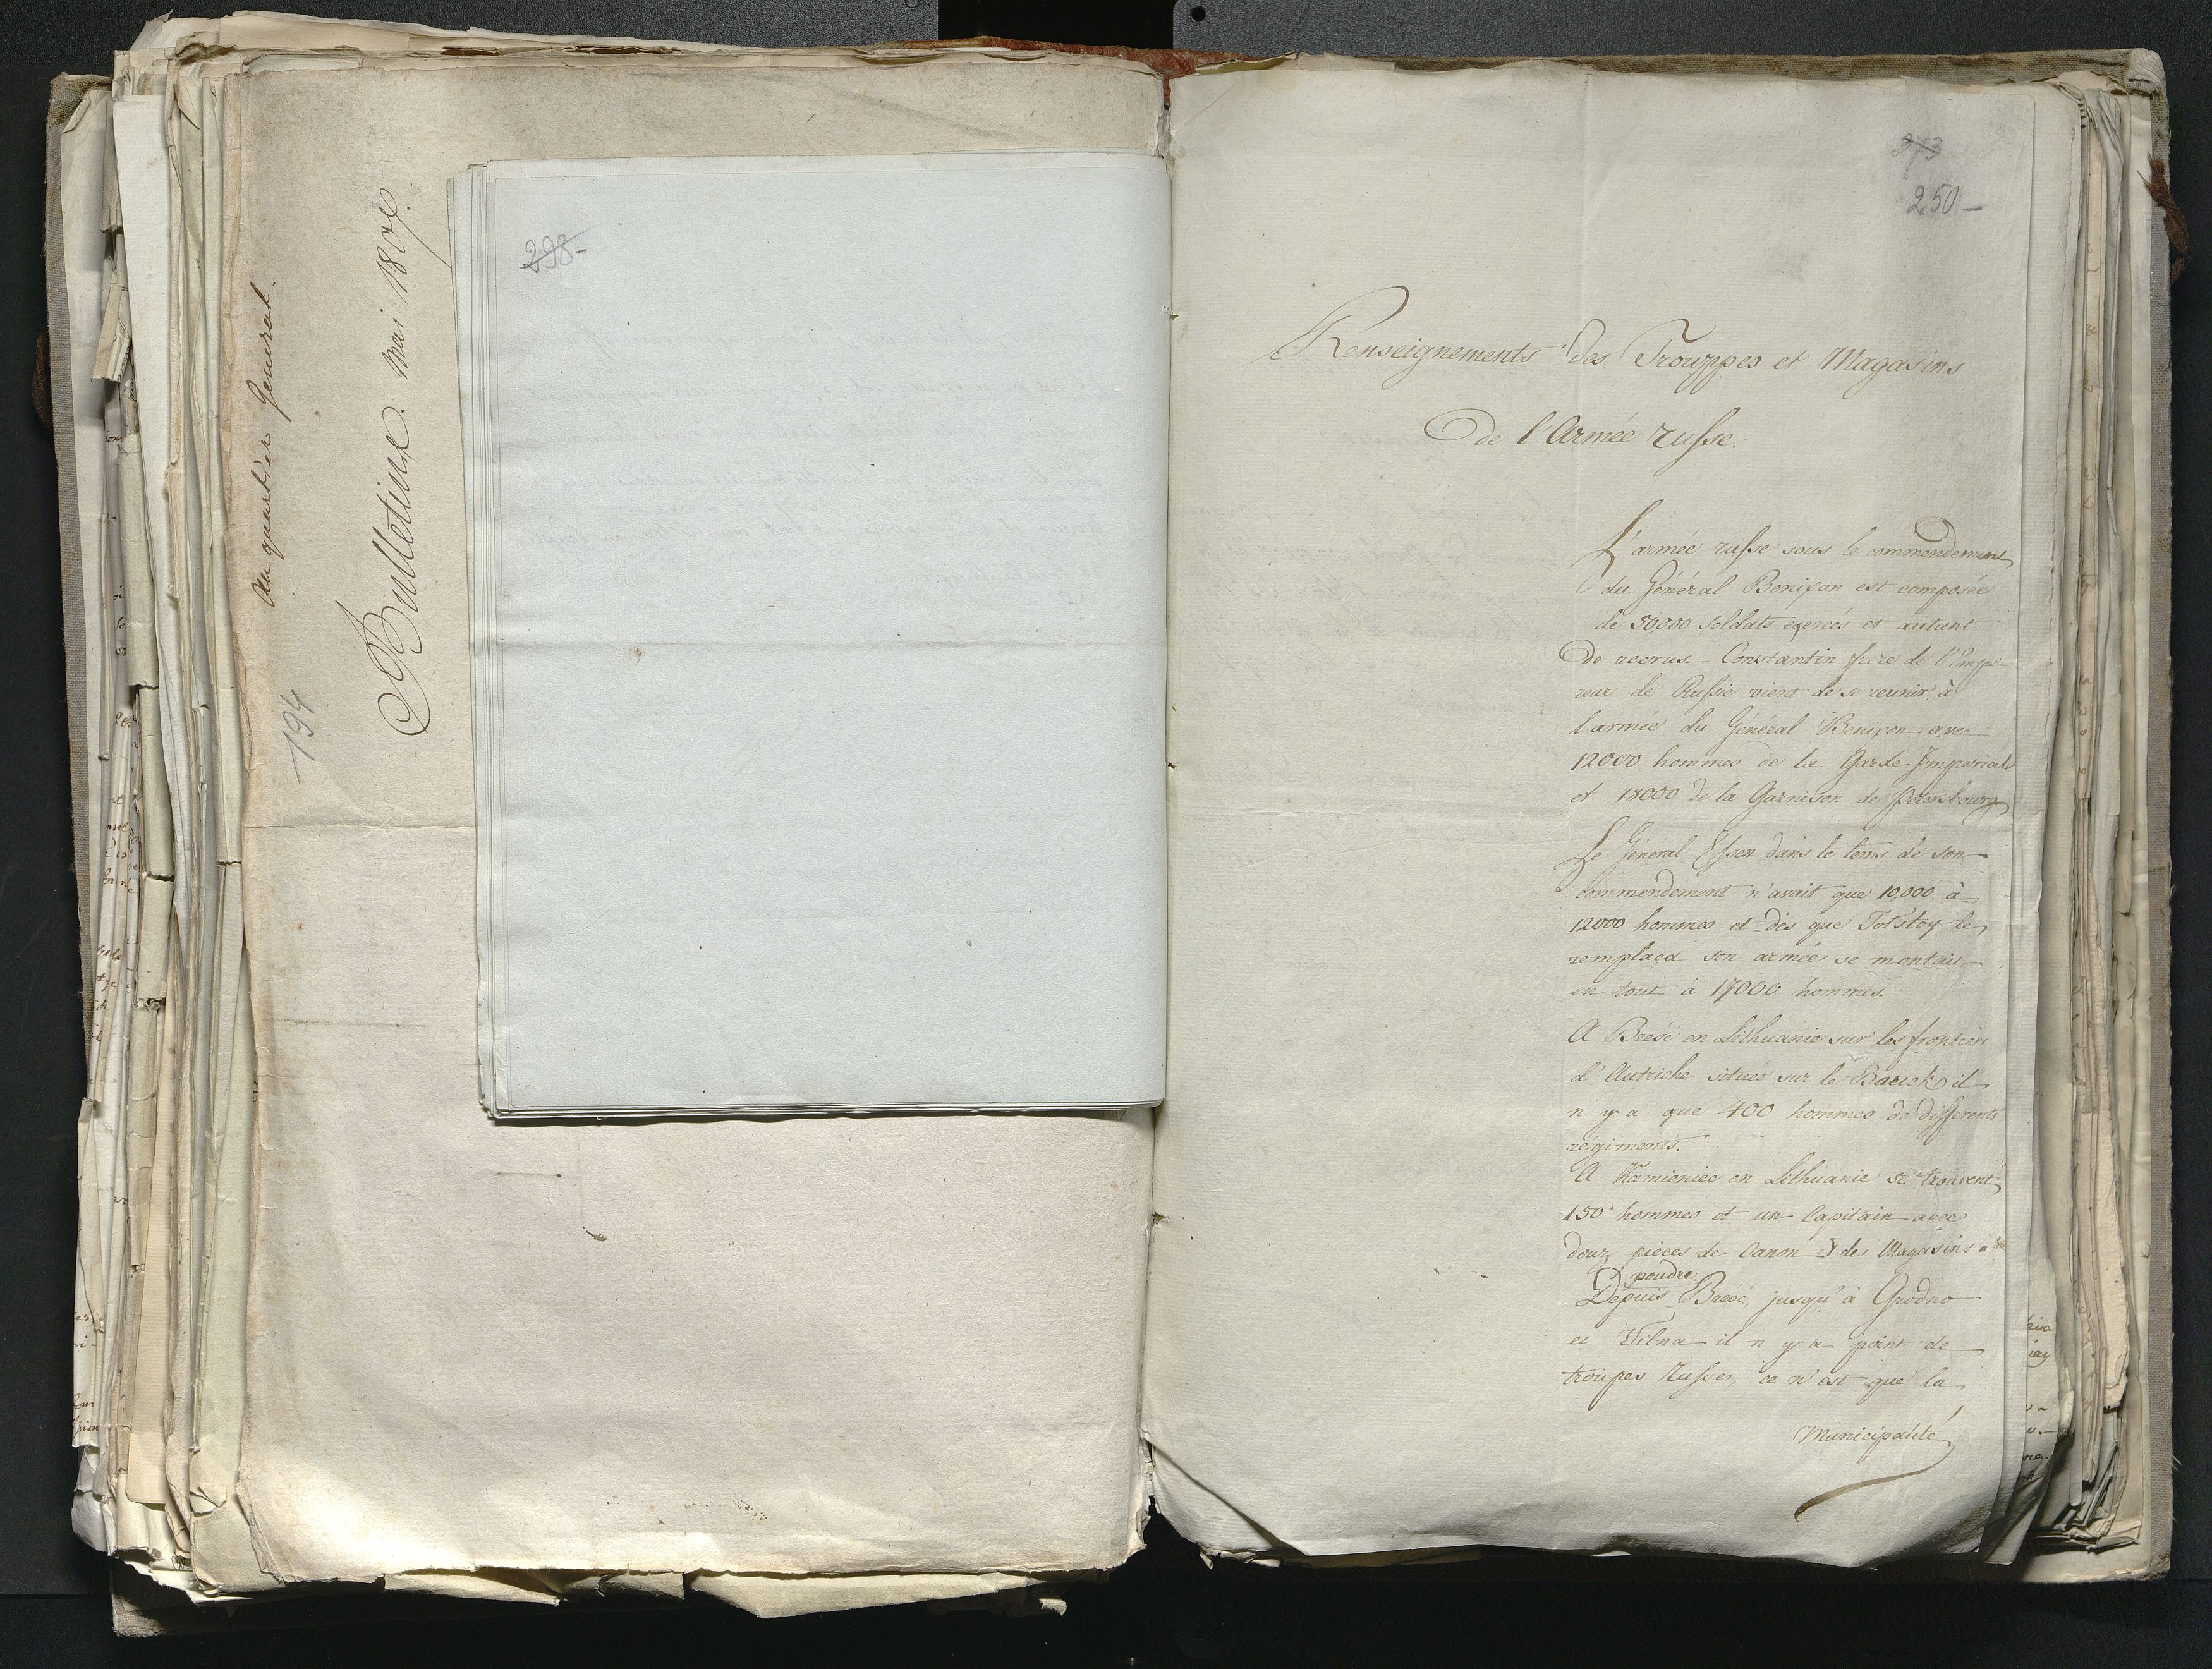 au quartier General.
Bulletins. Mai 1807.
194
298-
273
250-
Renseignements des Trouppes et Magasins
de l'Armée russe.
L'armée russe sous le commendement
du Général Benixon est composée
de 50,000 soldats exercés et autant
de recrus. - Constantin frere de l'Empe-
reur de Russie vient de se reunir à
l'armée du Général Benixon avec
12000 hommes de la Garde Imperiale
et 18000 de la Garnison de Petersbourg
Le Général Essen dans le tems de son
commendement n'avait que 10,000 à
12000 hommes et dés que Tolstoy le
remplaça son armée se montait
en tout à 17000 hommes.
A Brešć en Lithuanie sur les frontier
d'Autriche située sur le il
n'y a que 400 hommes de differents
régiments.
A Kamieniec en Lithuanie se trouvent
150 hommes et un Capitain avec
douz pieces de Canon & des Magasins à
poudre.
Depuis Brešć, jusqu'à Grodno
et Vilna il n'y a point de
troupes Russes, ce n'est que la
Municipalité